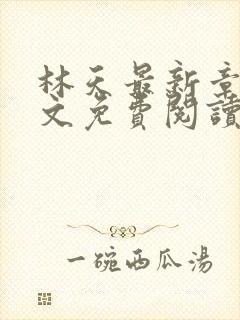 林天最新章
文免費閱讀
一碗西瓜湯